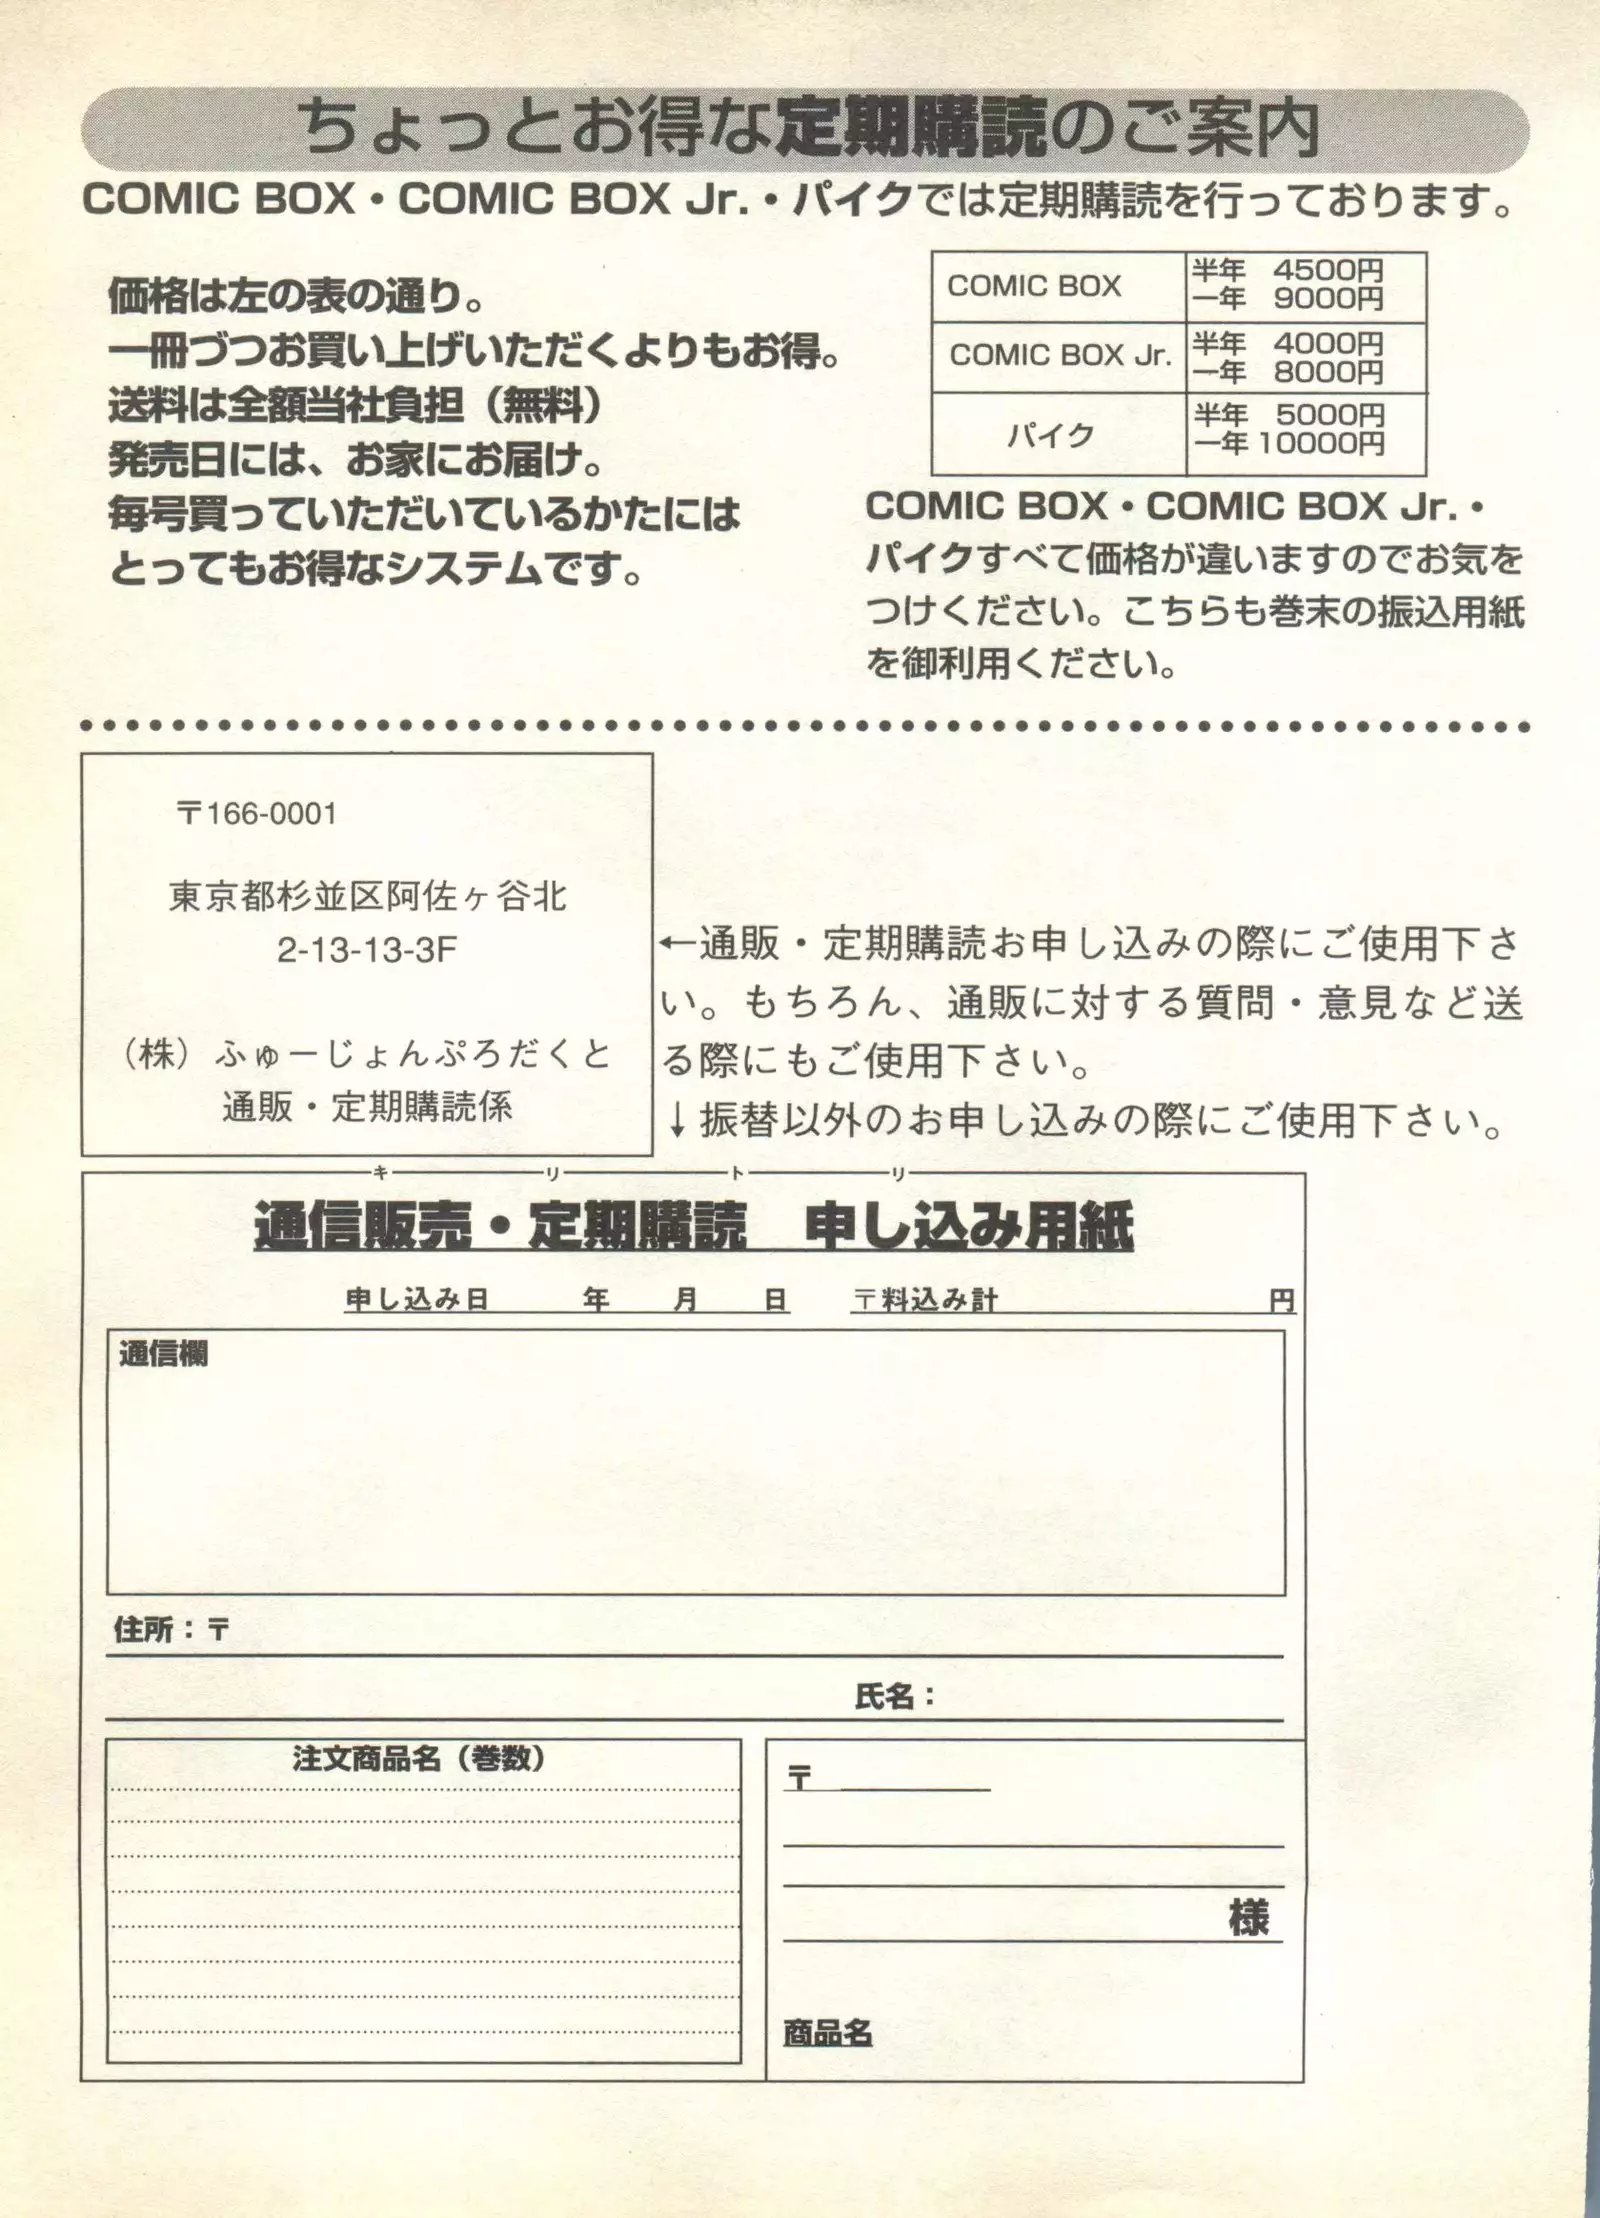 ちょっとお得な定期購読のご案内
COMIC BOX・COMIC BOX Jr.・パイクでは定期購読を行っております。
価格は左の表の通り。
一冊づつお買い上げいただくよりもお得。
送料は全額当社負担（無料）
発売日には、お家にお届け。
毎号買っていただいているかたには
とってもお得なシステムです。
COMIC BOX 半年 4500円
一年 9000円
COMIC BOX Jr. 半年 4000円
一年 8000円
パイク 半年 5000円
一年 10000円
COMIC BOX・COMIC BOX Jr.・
パイクすべて価格が違いますのでお気を
つけください。こちらも巻末の振込用紙
を御利用ください。
〒166-0001
東京都杉並区阿佐ヶ谷北
2-13-13-3F
（株）ふゅーじょんぷろだくと
通販・定期購読係
←通販・定期購読お申し込みの際にご使用下さ
い。もちろん、通販に対する質問・意見など送
る際にもご使用下さい。
↓振替以外のお申し込みの際にご使用下さい。
キリトリ
通信販売・定期購読　申し込み用紙
申し込み日 年 月 日 〒料込み計 円
通信欄
住所：〒
氏名：
注文商品名（巻数）
〒
様
商品名